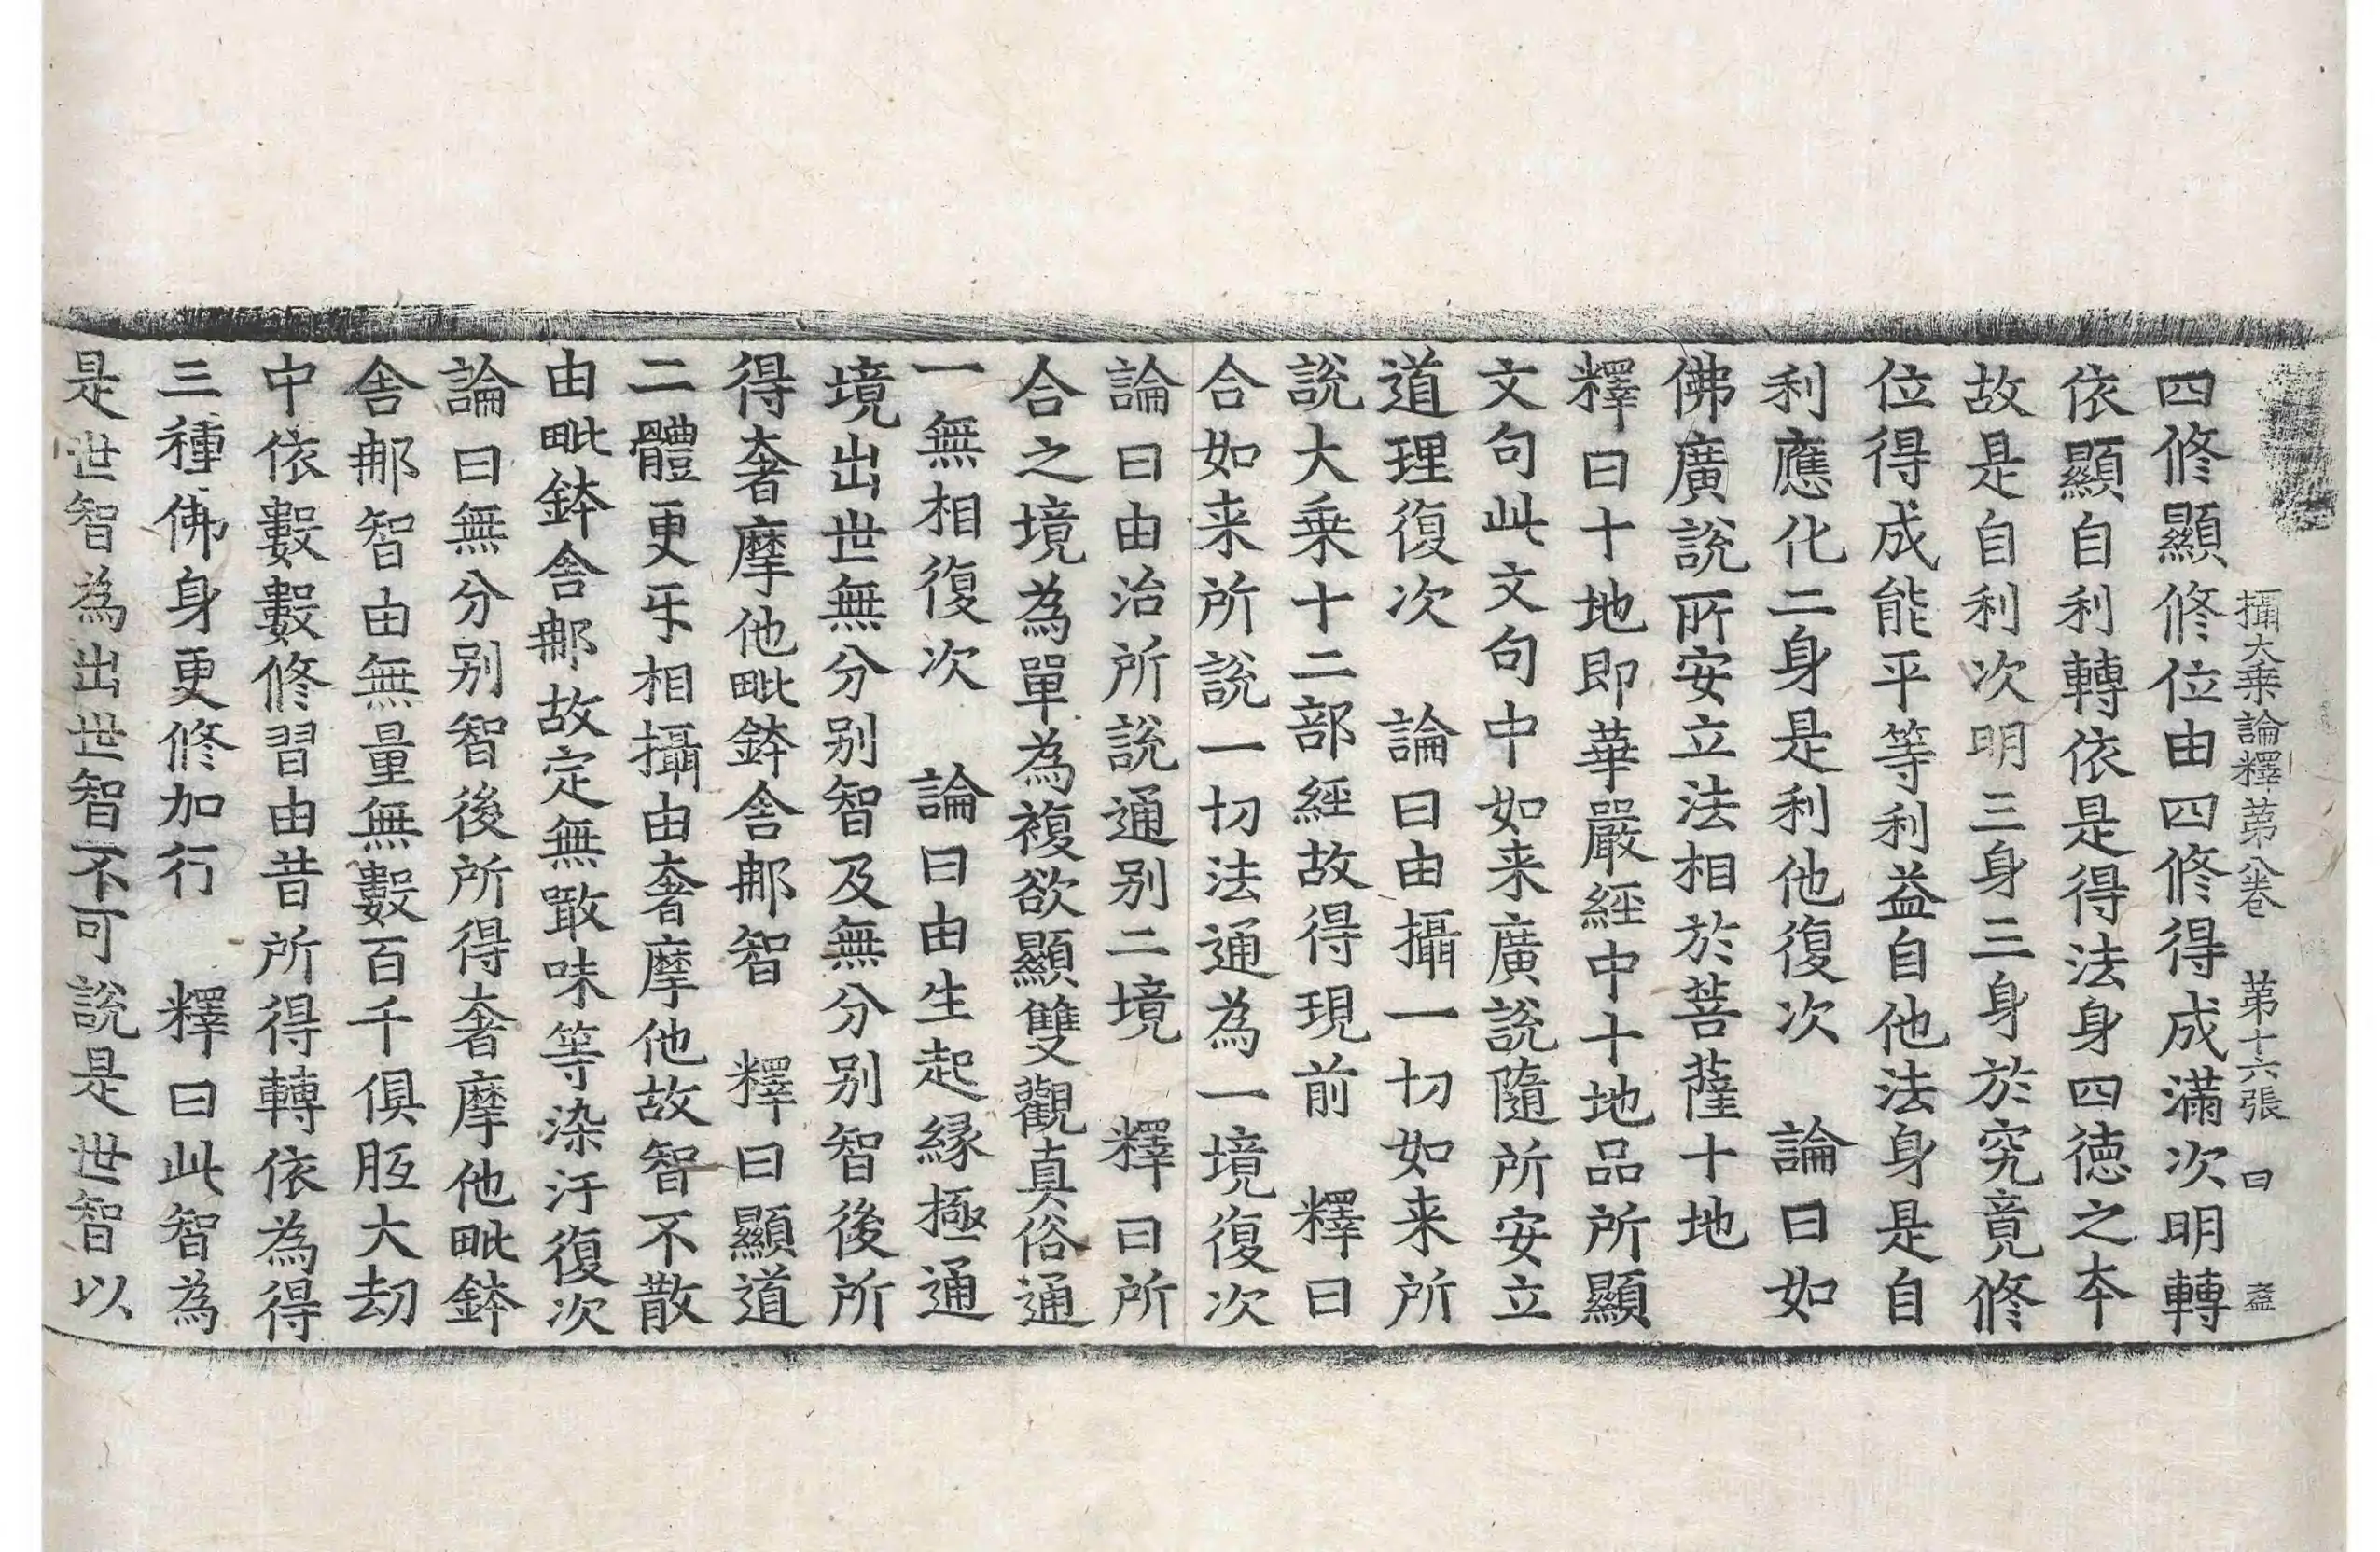 攝大乗論釋苐八卷　苐十六張　曰　盇
四修顯修位由四修得成滿次明轉
依顯自利轉依是得法身四徳之夲
故是自利次明三身三身於究竟修
位得成能平等利益自他法身是自
利應化二身是利他復次　論曰如
佛廣說所安立法相於菩薩十地
釋曰十地即華嚴經中十地品所顯
文句此文句中如来廣說隨所安立
道理復次　論曰由攝一切如来所
說大乗十二部經故得現前　釋曰
合如来所說一切法通為一境復次
論曰由治所說通别二境　釋曰所
合之境為單為複欲顯雙觀真俗通
一無相復次　論曰由生起縁極通
境出世無分别智及無分别智後所
得奢摩他毗鉢舍那智　釋曰顯道
二體更㸦相攝由奢摩他故智不散
由毗鉢舍那故定無噉味等染汙復次
論曰無分别智後所得奢摩他毗鉢
舍那智由無量無數百千俱胝大劫
中依數數修習由昔所得轉依為得
三種佛身更修加行　釋曰此智為
是世智為出世智不可說是世智以